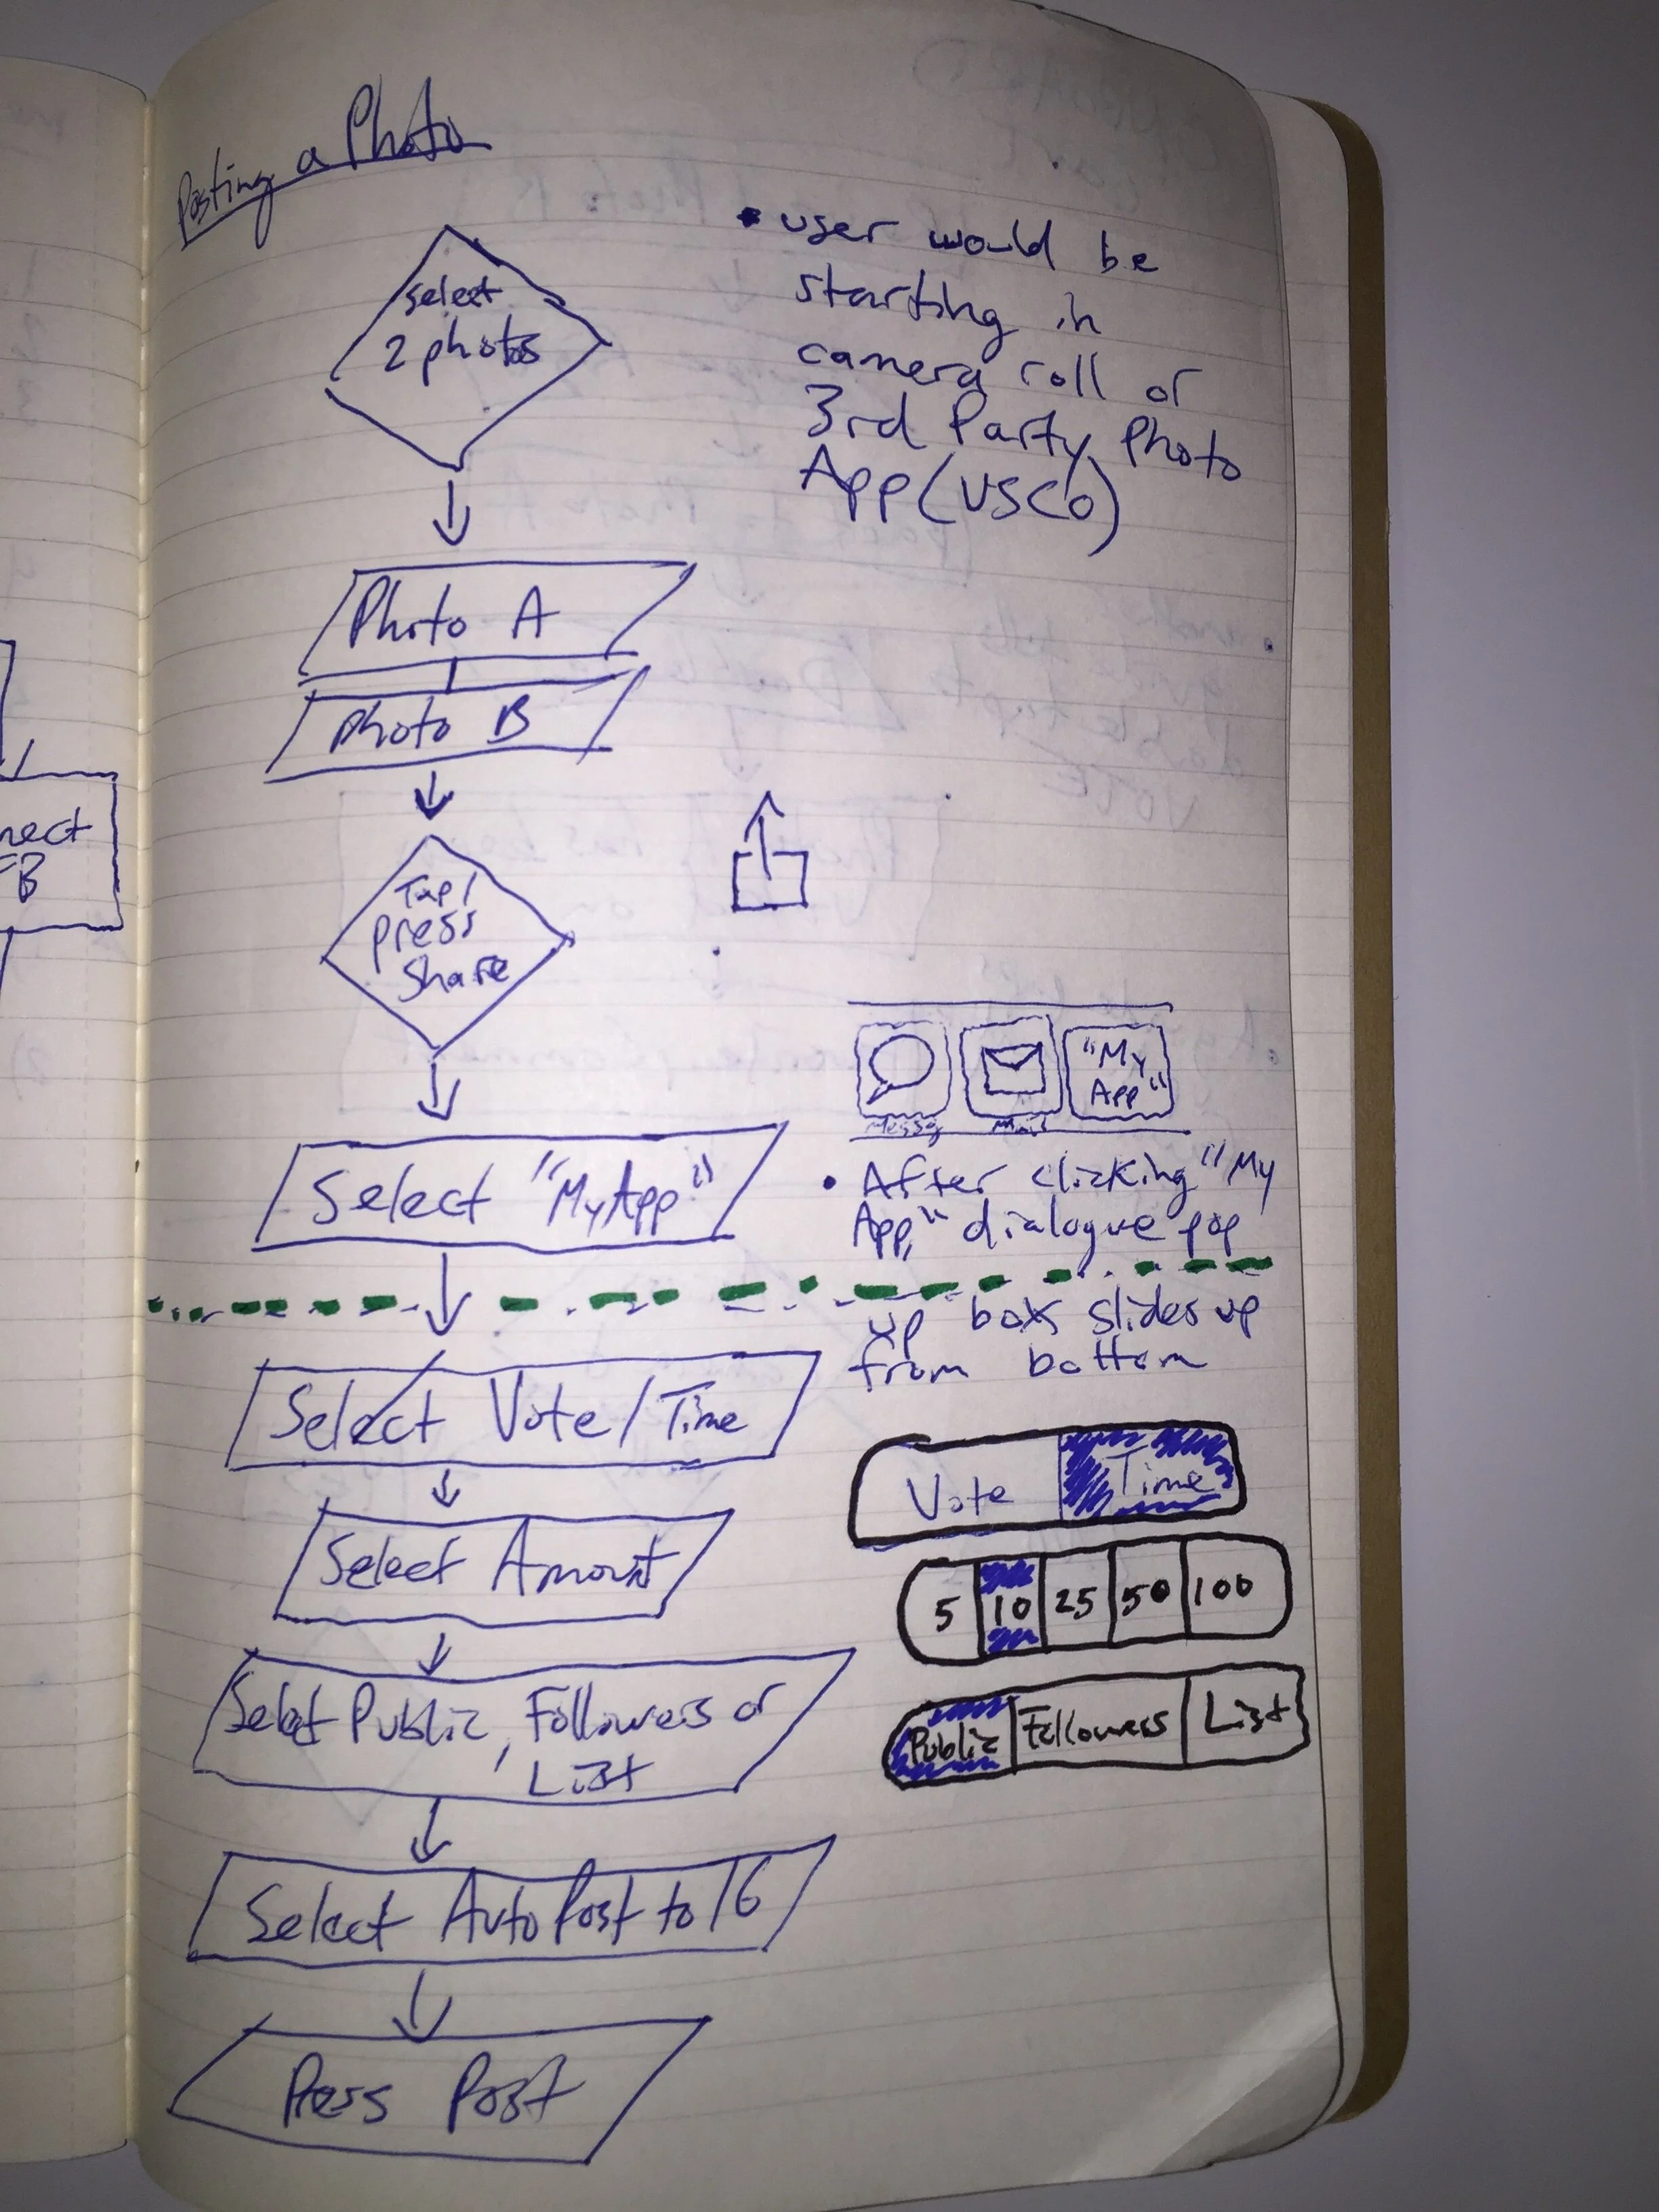 Posting a Photo
select
2 photos
• user would be
starting in
camera roll or
3rd Party Photo
App (VSCO)
Photo A
Photo B
nect
FB
Tap/
press
Share
Messg
Mail
"My
App"
Select "MyApp"
• After clicking "My
App," dialogue pop
up box slides up
from bottom
Select Vote/Time
Vote Time
Select Amount
5 10 25 50 100
Select Public, Followers or
List
Public Followers List
Select Auto Post to IG
Press Post